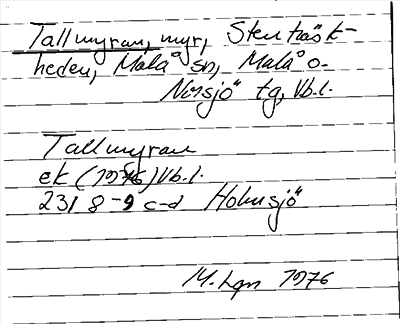 Tallmyran, myr, Stenträsk-
heden, Malå sn, Malå o.
Norsjö tg, Vb.l.
Tallmyran
ek (1976) Vb.l.
231 8-9 c-d Holmsjö
M. Lgn 1976